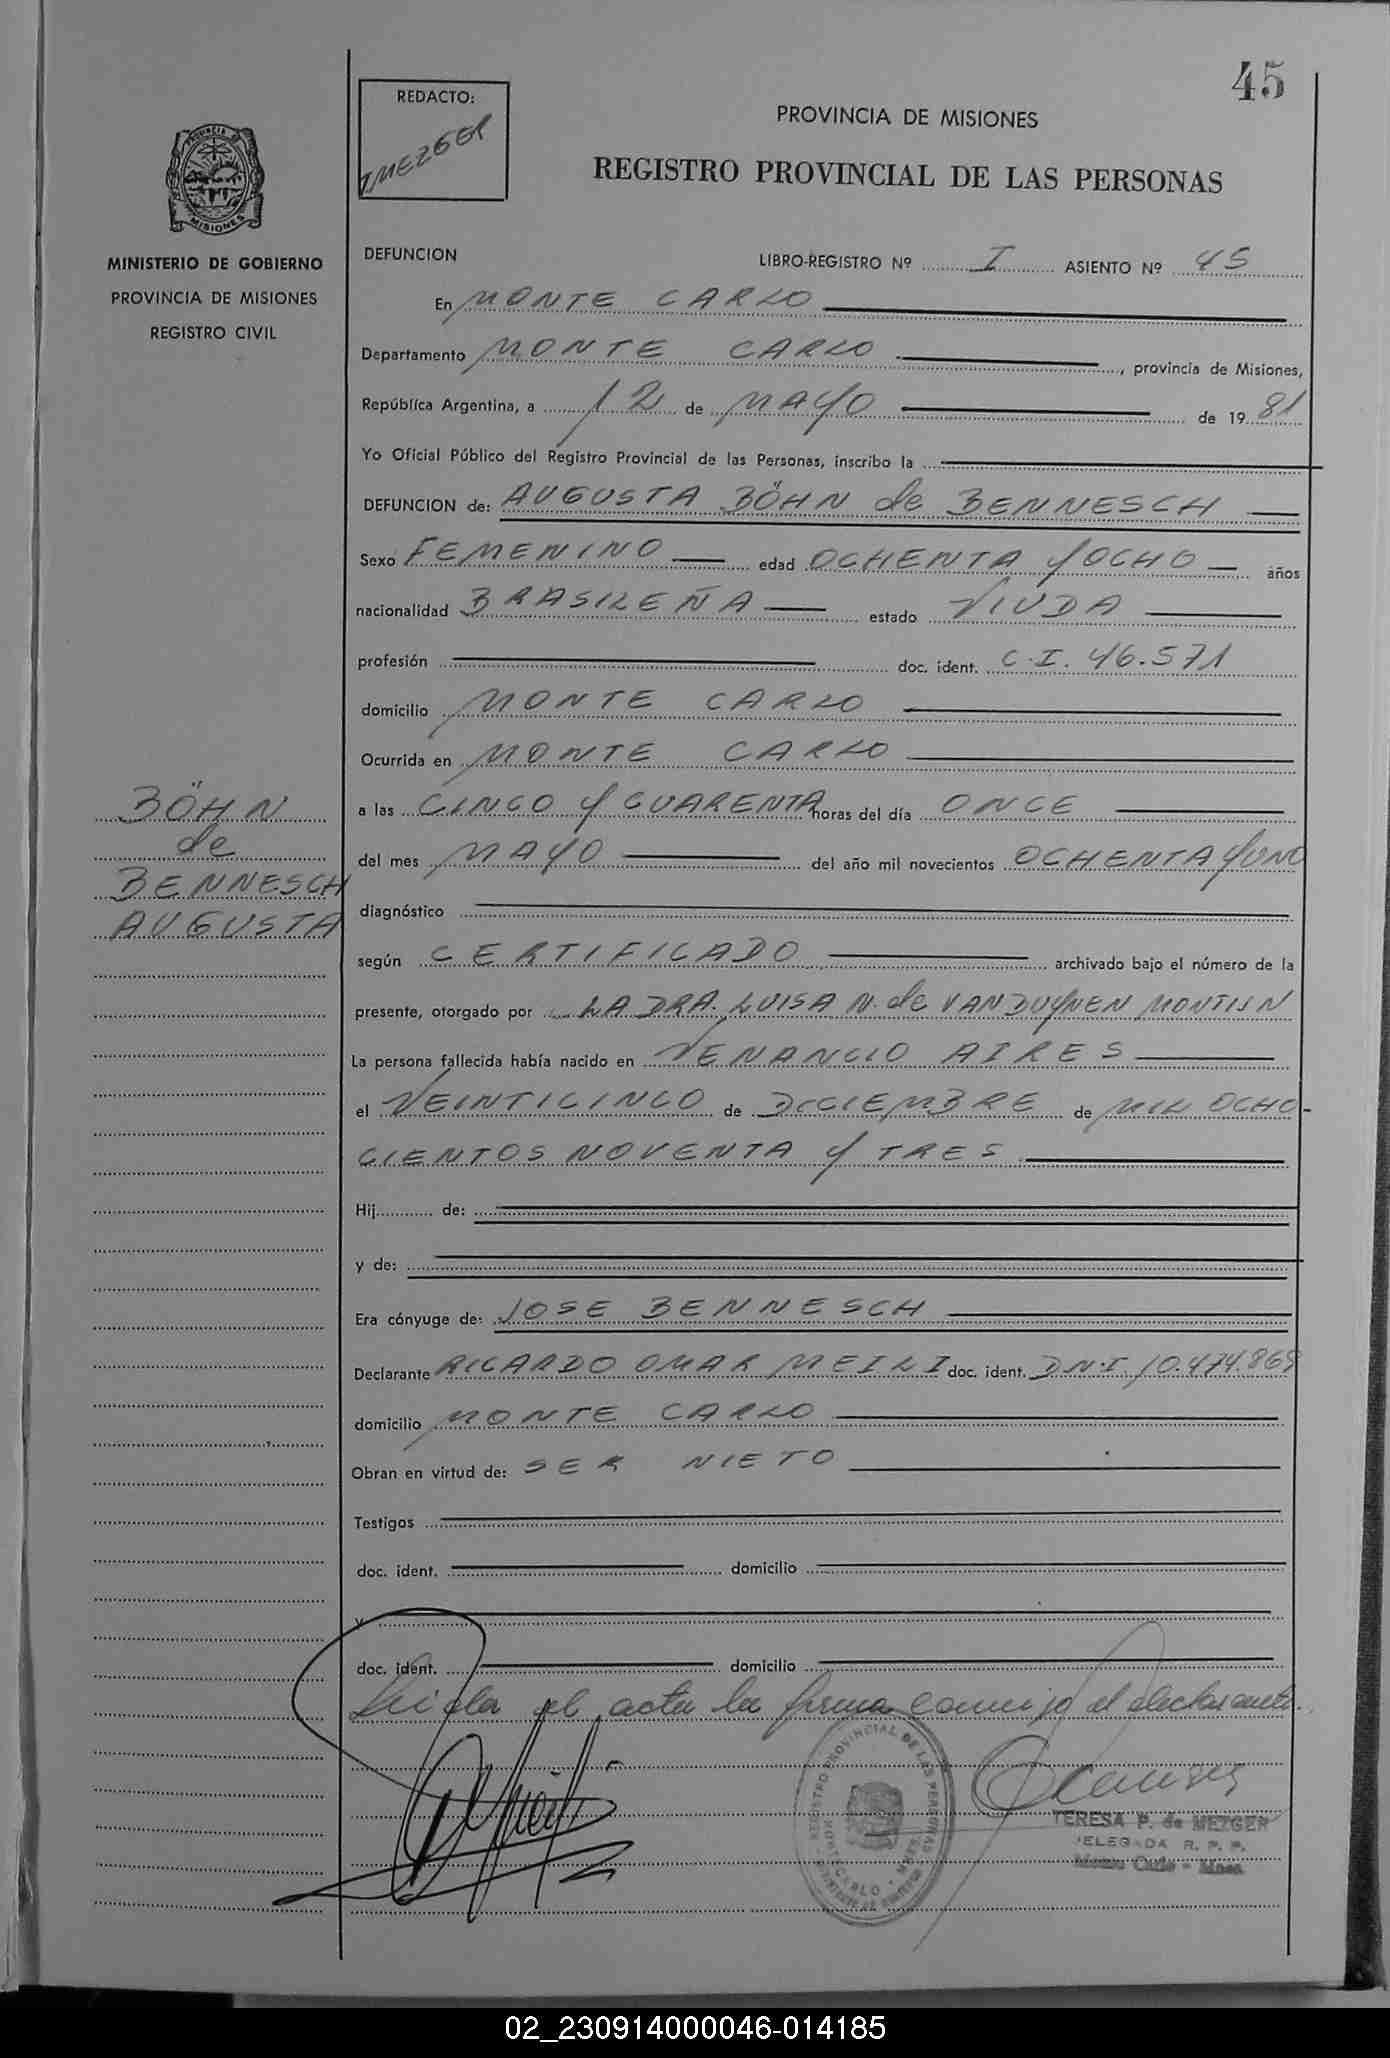 45
REDACTO:
MEZGER
PROVINCIA DE MISIONES
REGISTRO PROVINCIAL DE LAS PERSONAS
PROVINCIA DE
MISIONES
MINISTERIO DE GOBIERNO
PROVINCIA DE MISIONES
REGISTRO CIVIL
DEFUNCION LIBRO-REGISTRO Nº I ASIENTO Nº 45
En MONTE CARLO
Departamento MONTE CARLO, provincia de Misiones,
República Argentina, a 12 de MAYO de 19 81
Yo Oficial Público del Registro Provincial de las Personas, inscribo la
DEFUNCION de: AUGUSTA BÖHN de BENNESCH
Sexo FEMENINO edad OCHENTA y OCHO años
nacionalidad BRASILEÑA estado VIUDA
profesión doc. ident. C.I. 46.571
domicilio MONTE CARLO
Ocurrida en MONTE CARLO
BÖHN
de
BENNESCH
AUGUSTA
a las CINCO y CUARENTA horas del día ONCE
del mes MAYO del año mil novecientos OCHENTA y UNO
diagnóstico
según CERTIFICADO archivado bajo el número de la
presente, otorgado por LA DRA. LUISA N. de VANDUYNEN MONTIJN
La persona fallecida había nacido en VENANCIO AIRES
el VEINTICINCO de DICIEMBRE de MIL OCHO-
CIENTOS NOVENTA y TRES
Hij de:
y de:
Era cónyuge de: JOSE BENNESCH
Declarante RICARDO OMAR MEILI doc. ident. D.N.I. 10.474.869
domicilio MONTE CARLO
Obran en virtud de: SER NIETO
Testigos
doc. ident. domicilio
y
doc. ident. domicilio
Leida el acta la firma conmigo el declarante.
REGISTRO PROVINCIAL DE LAS PERSONAS
MONTECARLO - MNES.
TERESA P. de MEZGER
DELEGADA R. P. P.
Monte Carlo - Mnes.
02_230914000046-014185